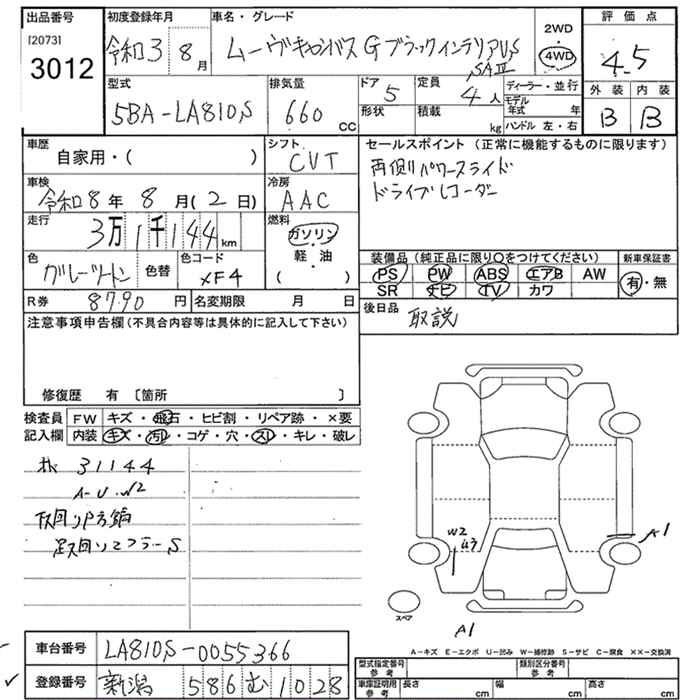 出品番号
[2073]
3012
初度登録年月
令和3 8月
車名・グレード
ムーヴキャンバス Gブラックインテリア VS
SAⅢ
2WD
4WD
評価点
4.5
外装 内装
B B
型式
5BA-LA810S
排気量
660 CC
ドア
5
形状
定員
4人
積載
kg
ディーラー・並行
モデル年式 年
ハンドル 左・右
車歴
自家用・( )
シフト
CVT
セールスポイント (正常に機能するものに限ります)
両側パワースライド
ドライブレコーダー
車検
令和8年 8月(2日)
冷房
AAC
走行
3万1千144km
燃料
ガソリン
軽・油
・
( )
色
グレーツートン
色替
色コード
XF4
装備品 (純正品に限り○をつけてください)
PS PW ABS エアB AW
SR ナビ TV カワ
新車保証書
有・無
R券 8790円
名変期限 月 日
後日品 取説
注意事項申告欄 (不具合内容等は具体的に記入して下さい)
修復歴 有 〔箇所 〕
検査員記入欄
FW キズ・飛石・ヒビ割・リペア跡・×要
内装 キズ・汚れ・コゲ・穴・スレ・キレ・破レ
31144
A-U.W2
下回りP方錆
足廻りマフラーS
W2
U3
A1
A1
スペア
A-キズ E-エクボ U-凹み W-補修跡 S-サビ C-腐食 ××-交換済
車台番号 LA810S-0055366
登録番号 新潟 586 む 1028
型式指定番号 参考
類別区分番号 参考
車庫証明用 参考 長さ cm 幅 cm 高さ cm